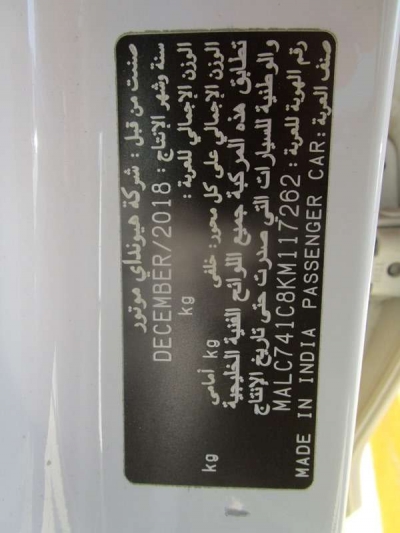 صنعت من قبل : شركة هيونداي موتور
سنة وشهر الإنتاج : DECEMBER/2018
الوزن الإجمالي للعربة : kg
الوزن الإجمالي على كل محور: خلفي kg أمامي kg
تطابق هذه المركبة جميع اللوائح الفنية الخليجية
والوطنية للسيارات التي صدرت حتى تاريخ الإنتاج
رقم الهوية للعربة : MALC741C8KM117262
صنف العربة: MADE IN INDIA PASSENGER CAR